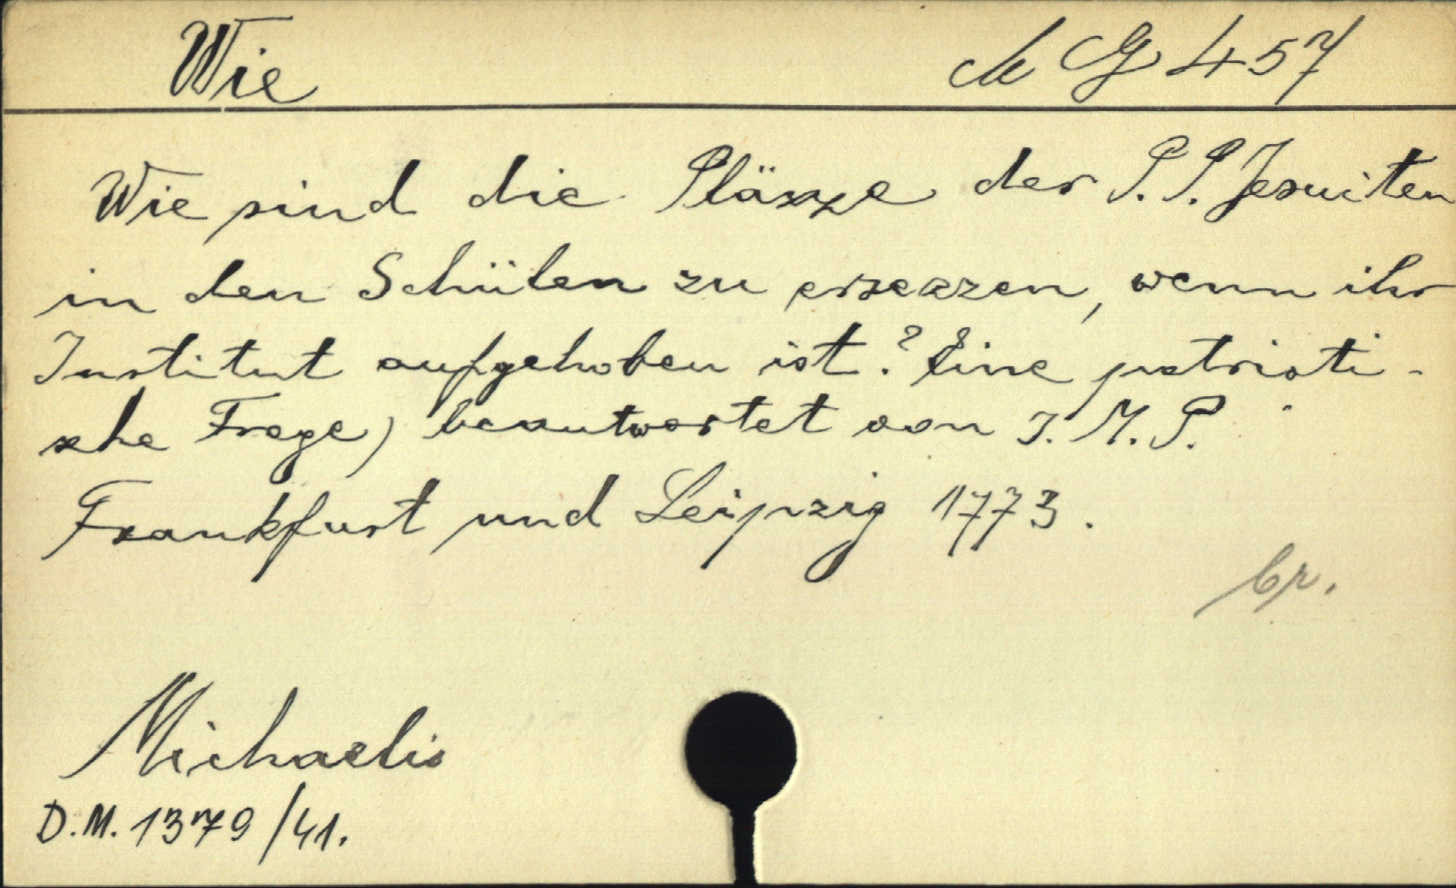 Wie M G 457
Wie sind die Pläzze der P. P. Jesuiten
in den Schülen zu ersezzen, wenn ihr
Institut aufgehoben ist? Eine patrioti-
sche Frage) beantwortet von J. M. P.
Frankfurt und Leipzig 1773.
br.
Michaelis
D.M. 1379/41.